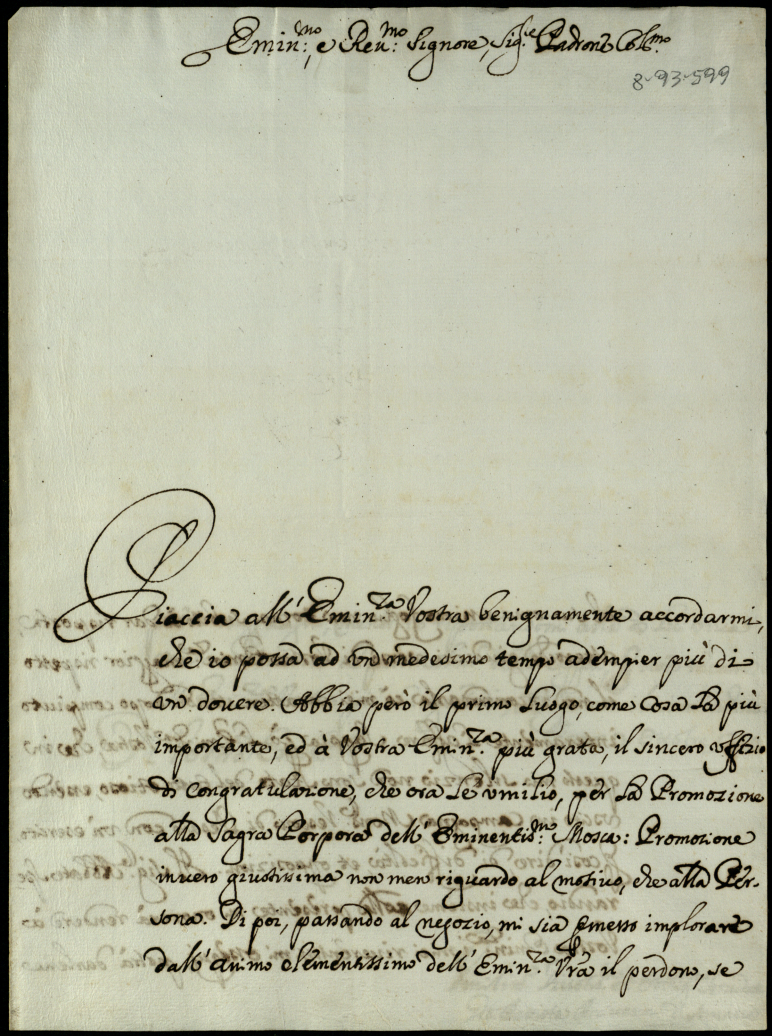 Emin.mo, e Reu.mo Signore, Sig.re Padrone Col.mo
8-93-599
Piaccia all' Emin.za Vostra benignamente accordarmi,
che io possa ad vn medesimo tempo adempier più di
vn douere. Abbia però il primo luogo, come cosa la più
importante, ed à Vostra Emin.za più grata, il sincero vffizio
di congratulazione, che ora le vmilio, per la Promozione
alla Sagra Porpora dell' Eminentis.mo Mosca: Promozione
inuero giustissima non men riguardo al motiuo, che alla Per-
sona. Di poi, passando al negozio, mi sia permesso implorare
dall' animo clementissimo dell' Emin.za Vra il perdono, se